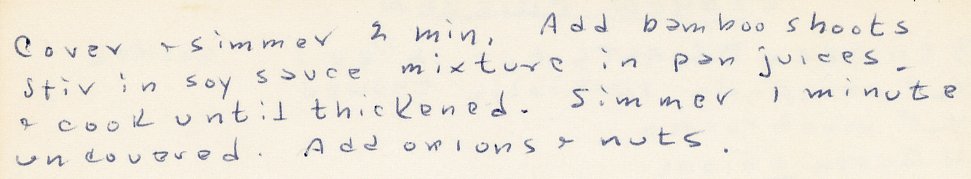 Cover & simmer 2 min, Add bamboo shoots
Stir in soy sauce mixture in pan juices.
& cook until thickened. Simmer 1 minute
uncovered. Add onions & nuts.